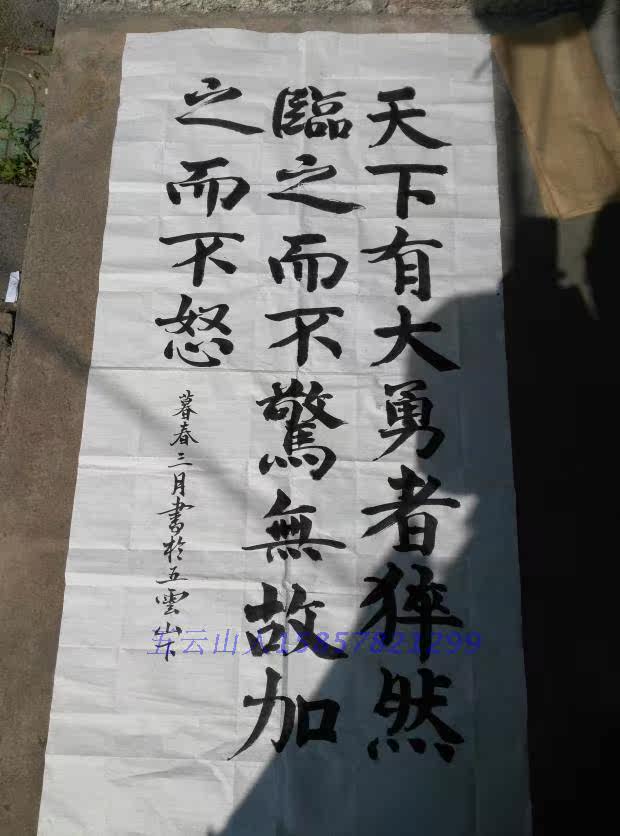 天下有大勇者猝然
臨之而不驚無故加
之而不怒
暮春三月書於五雲山下
五云山人15857821299